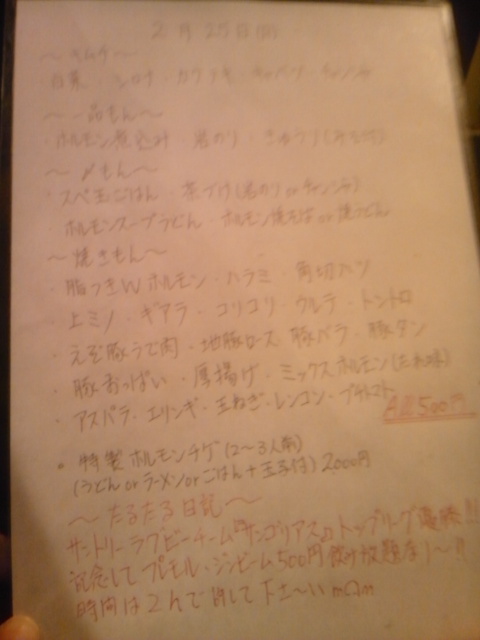 2月25日(月)
〜キムチ〜
・白菜・シロナ・カクテキ・キャベツ・チャンジャ
〜一品もん〜
・ホルモン煮込み・岩のり・きゅうり(みそ付)
〜〆もん〜
・スペ玉ごはん・茶づけ(岩のりorチャンジャ)
・ホルモンスープうどん・ホルモン焼そばor焼うどん
〜焼きもん〜
・脂つきWホルモン・ハラミ・角切ハツ
・上ミノ・ギアラ・コリコリ・ウルテ・トントロ
・えぞ豚うで肉・地豚ロース 豚バラ・豚タン
・豚おっぱい・厚揚げ・ミックスホルモン(たれ味)
・アスパラ・エリンギ・玉ねぎ・レンコン・プチトマト
ALL500円
・特製ホルモンチゲ(2〜3人前)
(うどんorラーメンorごはん+玉子付)2000円
〜たるたる日記〜
サントリーラグビーチーム『サンゴリアス』トップリーグ優勝!!
記念してプレモル・ジンビーム500円 飲け放題な)〜!!
時間は2んで
下さ〜い mΩm